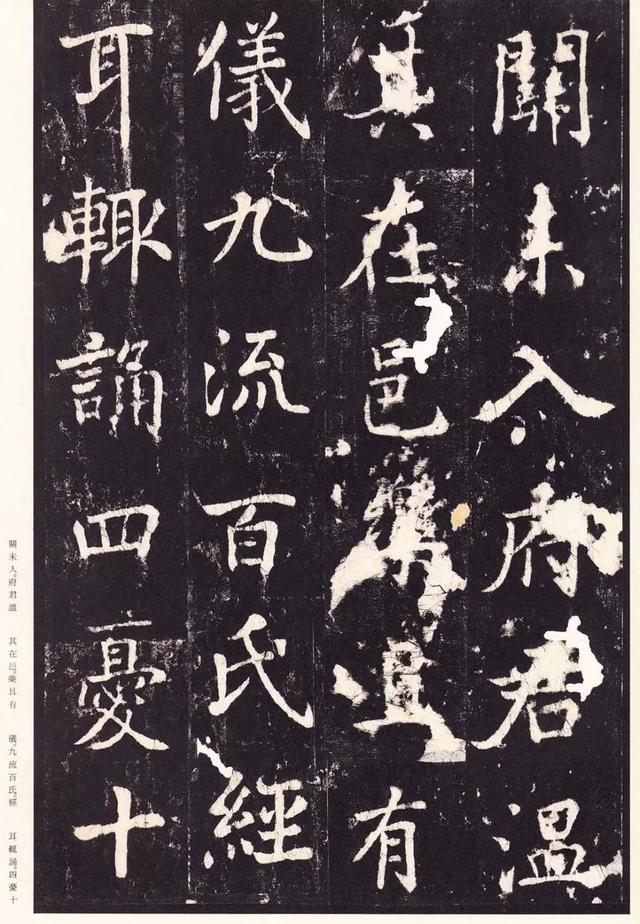 關未入府君溫
其在邑藥且有
儀九流百氏經
耳輒誦四憂十
關未入。府君溫　其在邑。藥且有　儀。九流百氏。經　耳輒誦。四憂十